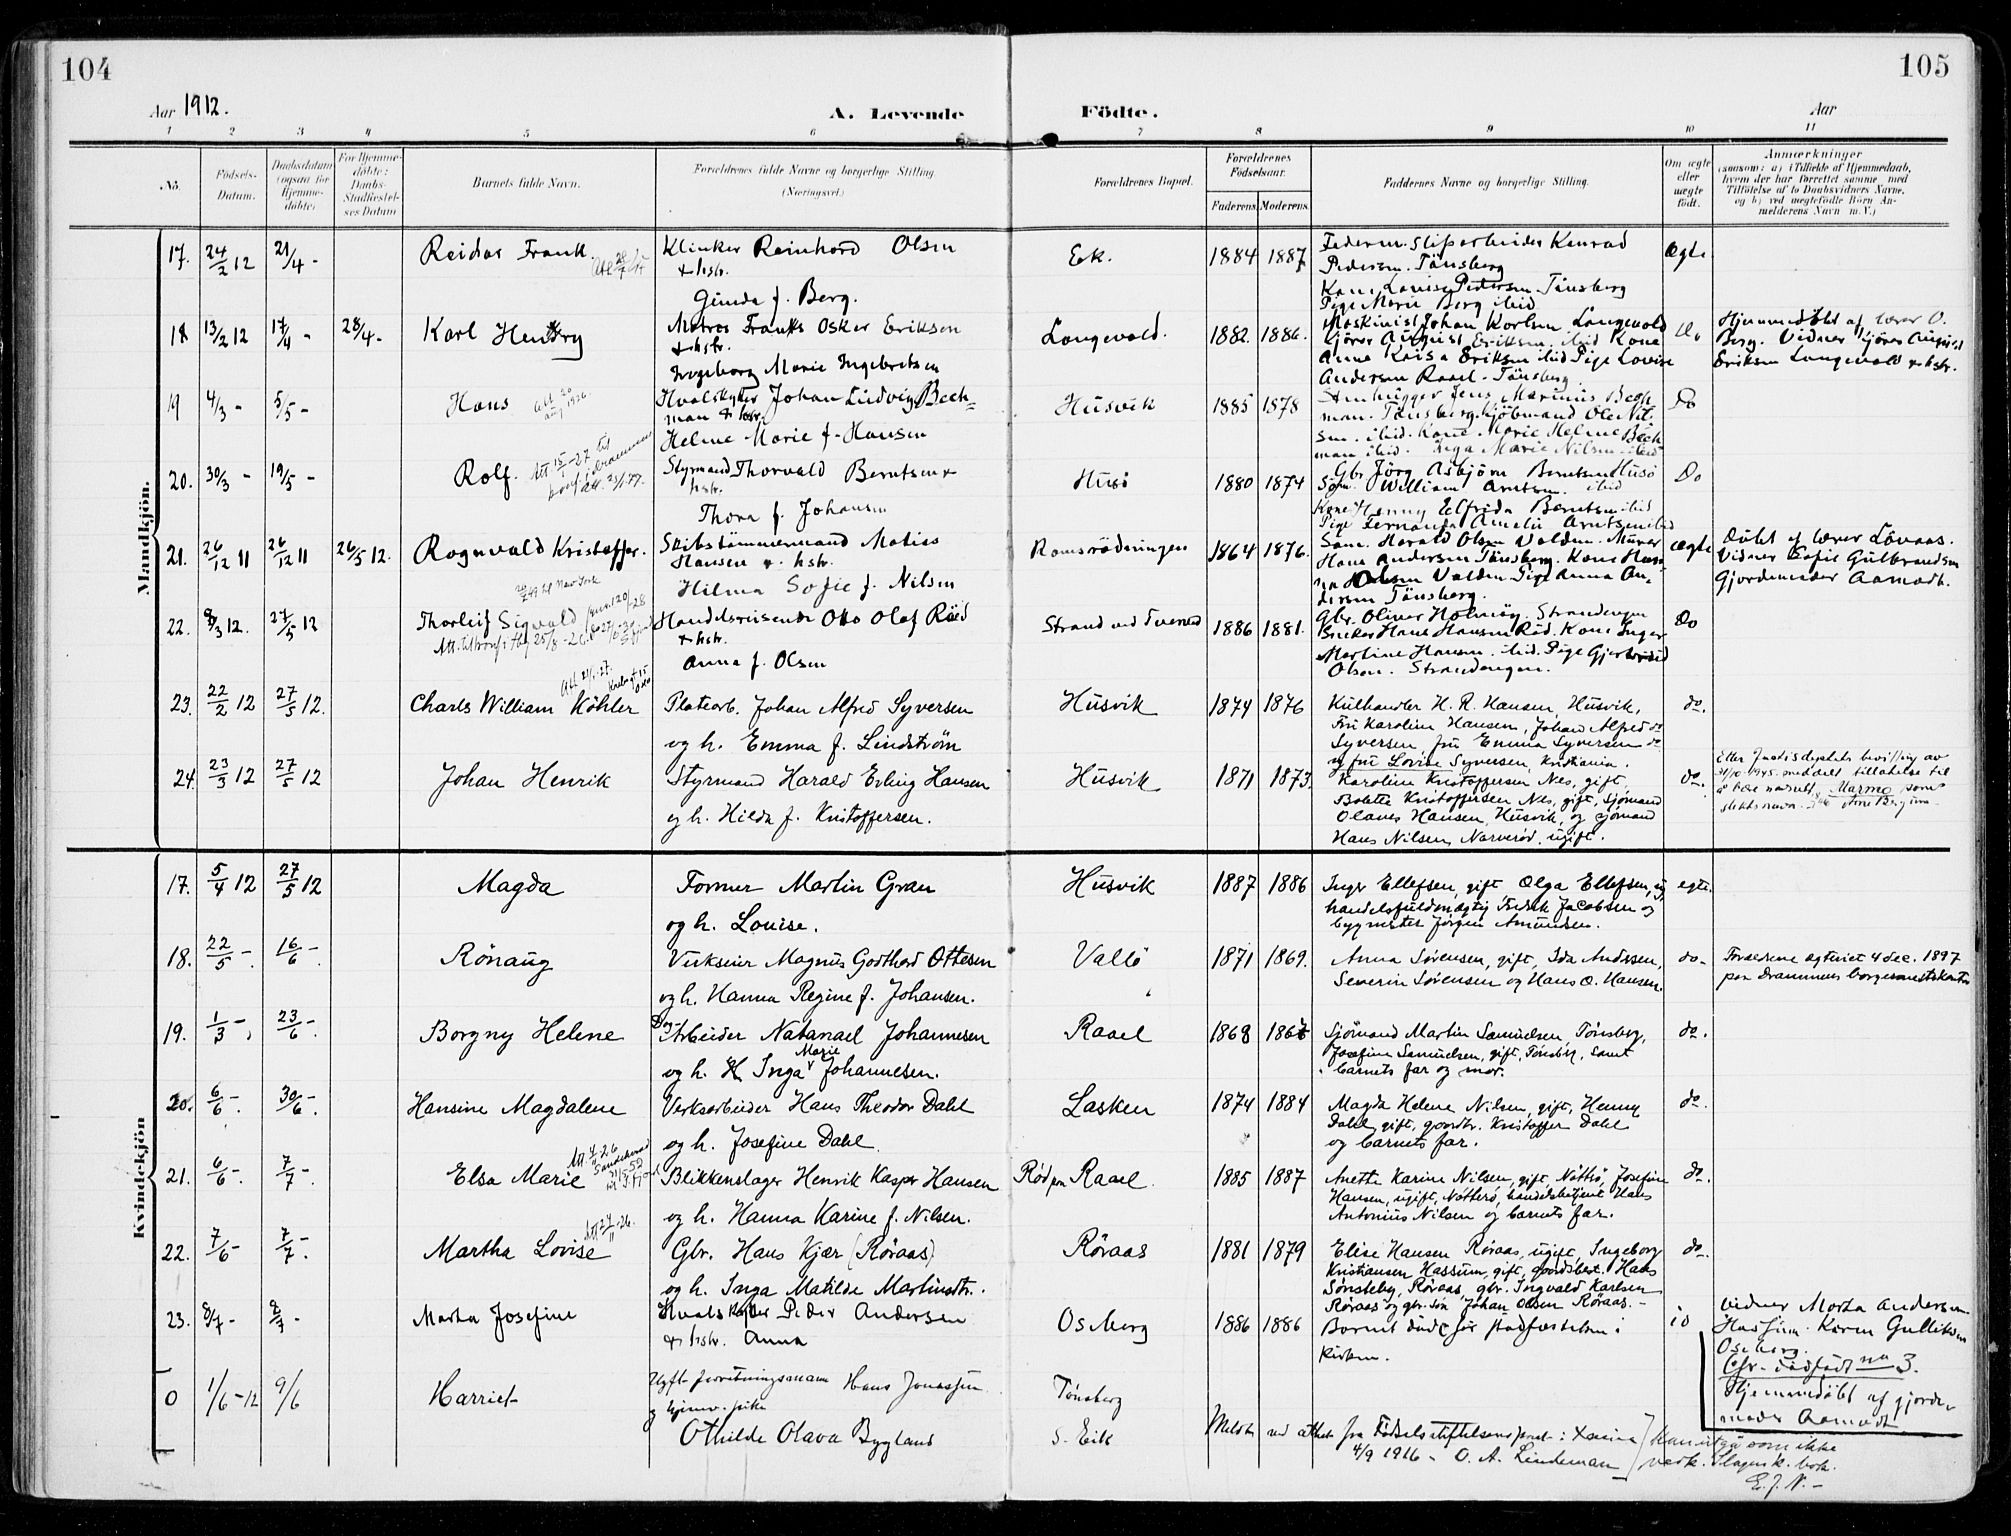 104
105
Aar 1912.
A. Levende
Födte.
Aar
1 2 3 4 5 6 7 8 9 10 11
No.
Födsels-
Datum.
Daabsdatum
(ogsaa for
Hjemme-
döbte)
For Hjemme-
döbte:
Daabs-
Stadfæstel-
ses Datum
Barnets fulde Navn.
Forældrenes fulde Navne og borgerlige Stilling
(Næringsvei.)
Forældrenes Bopæl.
Forældrenes
Födselsaar.
Faderens. Moderens.
Faddernes Navne og borgerlige Stilling.
Om ægte
eller
uægte
födt.
Anmærkninger
(saasom: a) i Tilfælde af Hjemmedaab,
hvem der har forrettet samme med
Tilföielse af to Daabsvidners Navne,
og b) ved uægtefödte Börn An-
melderens Navn m. V.)
Mandkjön.
17. 24/2 12 21/4 - Reidar Frank. Klinker Reinhard Olsen Ek. 1884 1887 ægte
& hstr.
Gunda f. Berg.
Pedersen. Tönsberg
Kone Lovise Pedersen Tönsberg
Pige Marie Berg ibid
18 13/2 12 17/4 - 28/4 - Karl Henry Matros Franks Oskar Eriksen Langevold. 1882. 1886. Do
& hstr.
Ingeborg Marie Ingebretsen
Maskinist Johan Karlsen Langevold
Anna Kaisa Eriksen ibid Pige Lovise
Andersen Raael - Tönsberg
Hjemmedöbt af lærer O.
Berg. Vidner Kjörer August
Eriksen Langevold & hstr.
19 4/3 - 5/5 - Hans Hvalskytter Johan Ludvig Bech- Husvik 1885 1878 Do
man & hstr.
Helene Marie f. Hansen
Stenhugger Jens Marinius Bech
man. Tönsberg.
man ibid. Inga Marie Nilsen ibid
20. 30/3 - 19/5 - Rolf. Styrmand Thorvald Berntsen & Husö 1880 1874 Do
hstr.
Thora f. Johansen
Gbr. Jörg Asbjörn Berntsen Husö
William Arntsen. ibid
Kone Henny Elfrida Berntsen ibid
Pige Fernanda Amalie Arntsen ibid
21. 26/12 11 26/12 11 26/5 12. Ragnvald Kristoffer. Skibstömmermand Matias Ramsrödningen 1864 1876. ægte
Hansen & hstr.
Hilma Sofie f. Nilsen
Söm. Harald Olsen Valden. Murer
Hans Andersen Tönsberg. Kone Han-
na Olsen Valden. Pige Anna An-
dersen Tönsberg.
Döbt af lærer Lövaas.
Vidner Sofie Gulbrandsen
Gjordemoder Aamodt.
22. 8/3 12. 27/5 12 Thorleif Sigvald Handelsreisende Otto Olaf Röed Strand ved Tveved 1886 1881. Do
& hstr.
Anna f. Olsen
Gbr. Oliver Holmöy, Strandengen
Bruker Hans Hansen Röd. Kone Inger
Martine Hansen. ibid. Pige Gjertrud
Olsen. Strandengen.
23. 22/2 12 27/5 12. Charles William Köhler Platearb. Johan Alfred Syversen Husvik 1874 1876 do.
og h. Emma f. Lindström
Kulhandler H. R. Hansen, Husvik,
Fru Karoline Hansen, Johan Alfred do
Syversen, fru Emma Syversen do
og fru Lovise Syversen, Kristiania.
24. 23/3 12 27/5 12 Johan Henrik Styrmand Harald Erling Hansen Husvik 1871 1873. do.
og h. Hilda f. Kristoffersen.
Karoline Kristoffersen Nes, gift,
Bolette Kristoffersen Nes, gift, sjömand
Olaves Hansen, Husvik, og sjömand
Hans Nilsen, Narveröd, ugift.
Efter Justisdeptets bevilling av
31/10-1945 meddelt tillatelse til
å bære navnet Marmo som
slektsnavn.
Kvindekjön
17. 5/4 12 27/5 12 Magda Former Martin Gran Husvik 1887 1886 egte.
og h. Louise.
Inger Ellefsen, gift, Olga Ellefsen, ug,
handelsfuldmægtig Fredrik Jacobsen og
bygmester Jörgen Amundsen.
18. 22/5 - 16/6 - Rönaug Verkseier Magnus Godthard Ottesen Vallö 1871 1869. do-
og h. Hanna Regine f. Johansen.
Anna Sörensen, gift, Ida Andersen,
Severin Sörensen og Hans O. Hansen.
Forældrene egteviet 4 dec. 1897
paa Drammens borgermesterkontor
19. 1/3 - 23/6 - Borgny Helene Arbeider Natanael Johannesen Raael 1868 do.
og h. Inga Marie Johannesen.
Sjömand Martin Samuelsen, Tönsberg,
Josefine Samuelsen, gift, Tönsberg, samt
barnets far og mor.
20. 6/6 - 30/6 - Hansine Magdalene Verksarbeider Hans Theodor Dahl Lasken 1874 1884 do.
og h. Josefine Dahl
Magda Helene Nilsen, gift, Henny
Dahl, gift, gaardbr. Kristoffer Dahl
og barnets far.
21. 6/6 - 7/7 - Elsa Marie Blikkenslager Henrik Kasper Hansen Röd pr Raael. 1885 1887 do.
og h. Hanna Karine f. Nilsen.
Anette Karine Nilsen, gift, Nötterö, Josefine
Hansen, ugift, Nötterö, handelsbetjent Hans
Antonius Nilsen og barnets far.
22. 7/6 - 7/7 - Martha Lovise Gbr. Hans Kjær (Röraas) Röraas 1881 1879 do.
og h. Inga Matilde Martinsdtr.
Elise Hansen Röraas, ugift, Ingeborg
Kristiansen Hassum, gift, gaardsbest. Hans
Sönsteby, Röraas, gbr. Ingvald Karlsen
Röraas og gbr. sön Johan Olsen Röraas. -
23. 8/7 - 8/7 - Marta Josefine Hvalskytter Peder Andersen Oseberg 1886 1886
& hstr. Anna
Barnet döde för stadfæstelsen i
kirken.
Vidner Marta Andersen
Hassum. Karen Gulliksen
Oseberg.
Cfr. dödfödt no 3.
Hjemmedöbt af gjorde-
moder Aamodt
0 1/6 - 12 9/6 Harriet Ugift forretningsmann Hans Jonassen Tönsberg
Othilde Olava Bygland S. Eik
Meldt ved attest fra Födselsstiftelsens prest i
4/9 1916 - O. A. Lindeman
Kan utgå som ikke
vedk. Slagen k. bok.
E. J. N. -